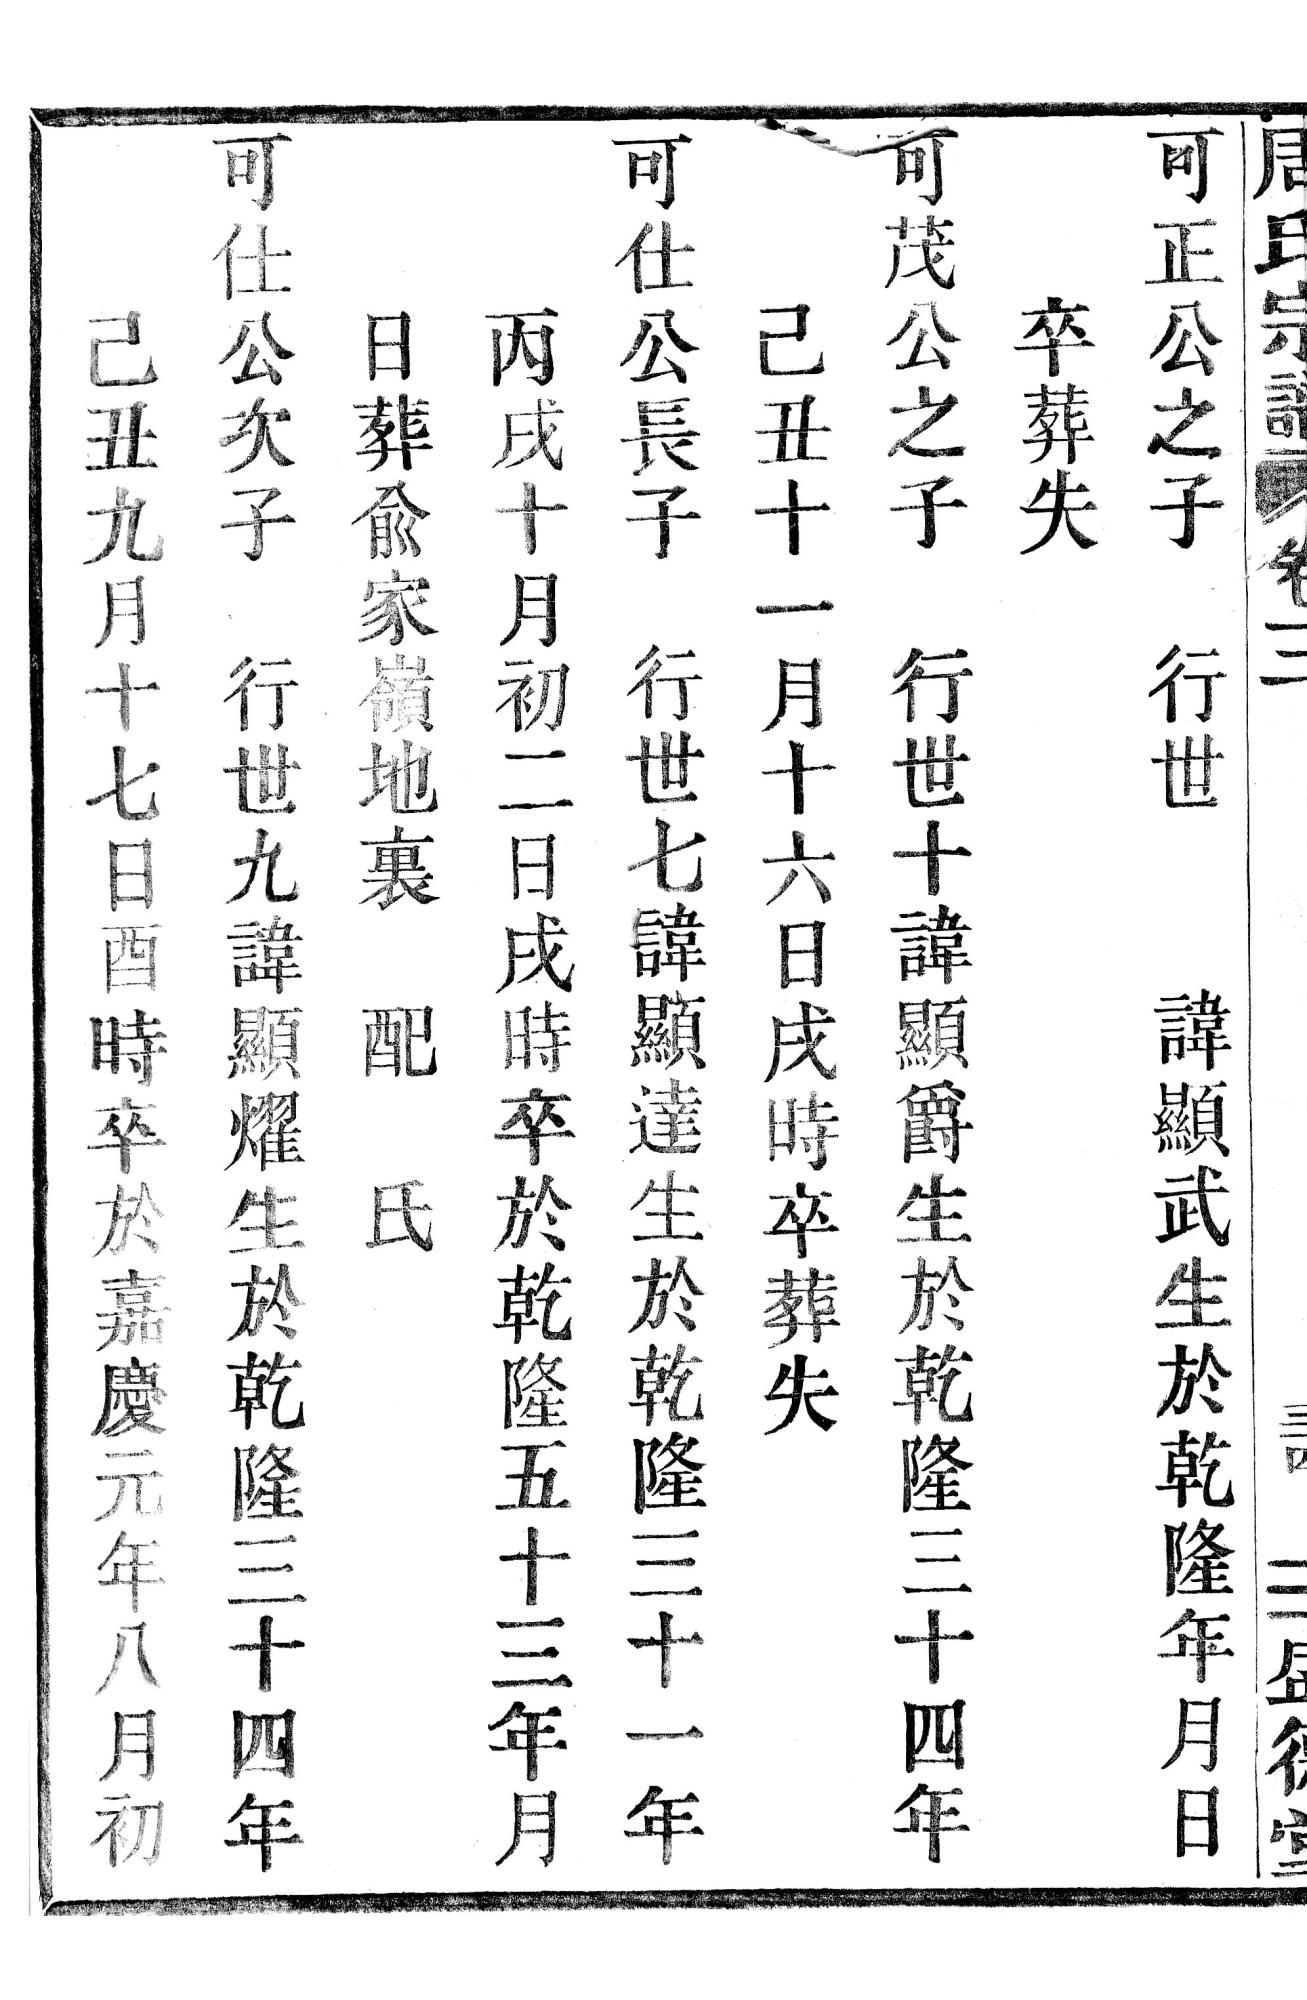 周氏宗譜 卷二 三盛德堂
可正公之子　行世　　諱顯武生於乾隆年月日
卒葬失
可茂公之子　行世十諱顯爵生於乾隆三十四年
己丑十一月十六日戌時卒葬失
可仕公長子　行世七諱顯達生於乾隆三十一年
丙戌十月初二日戌時卒於乾隆五十三年月
日葬俞家嶺地裏　配　氏
可仕公次子　行世九諱顯燿生於乾隆三十四年
己丑九月十七日酉時卒於嘉慶元年八月初